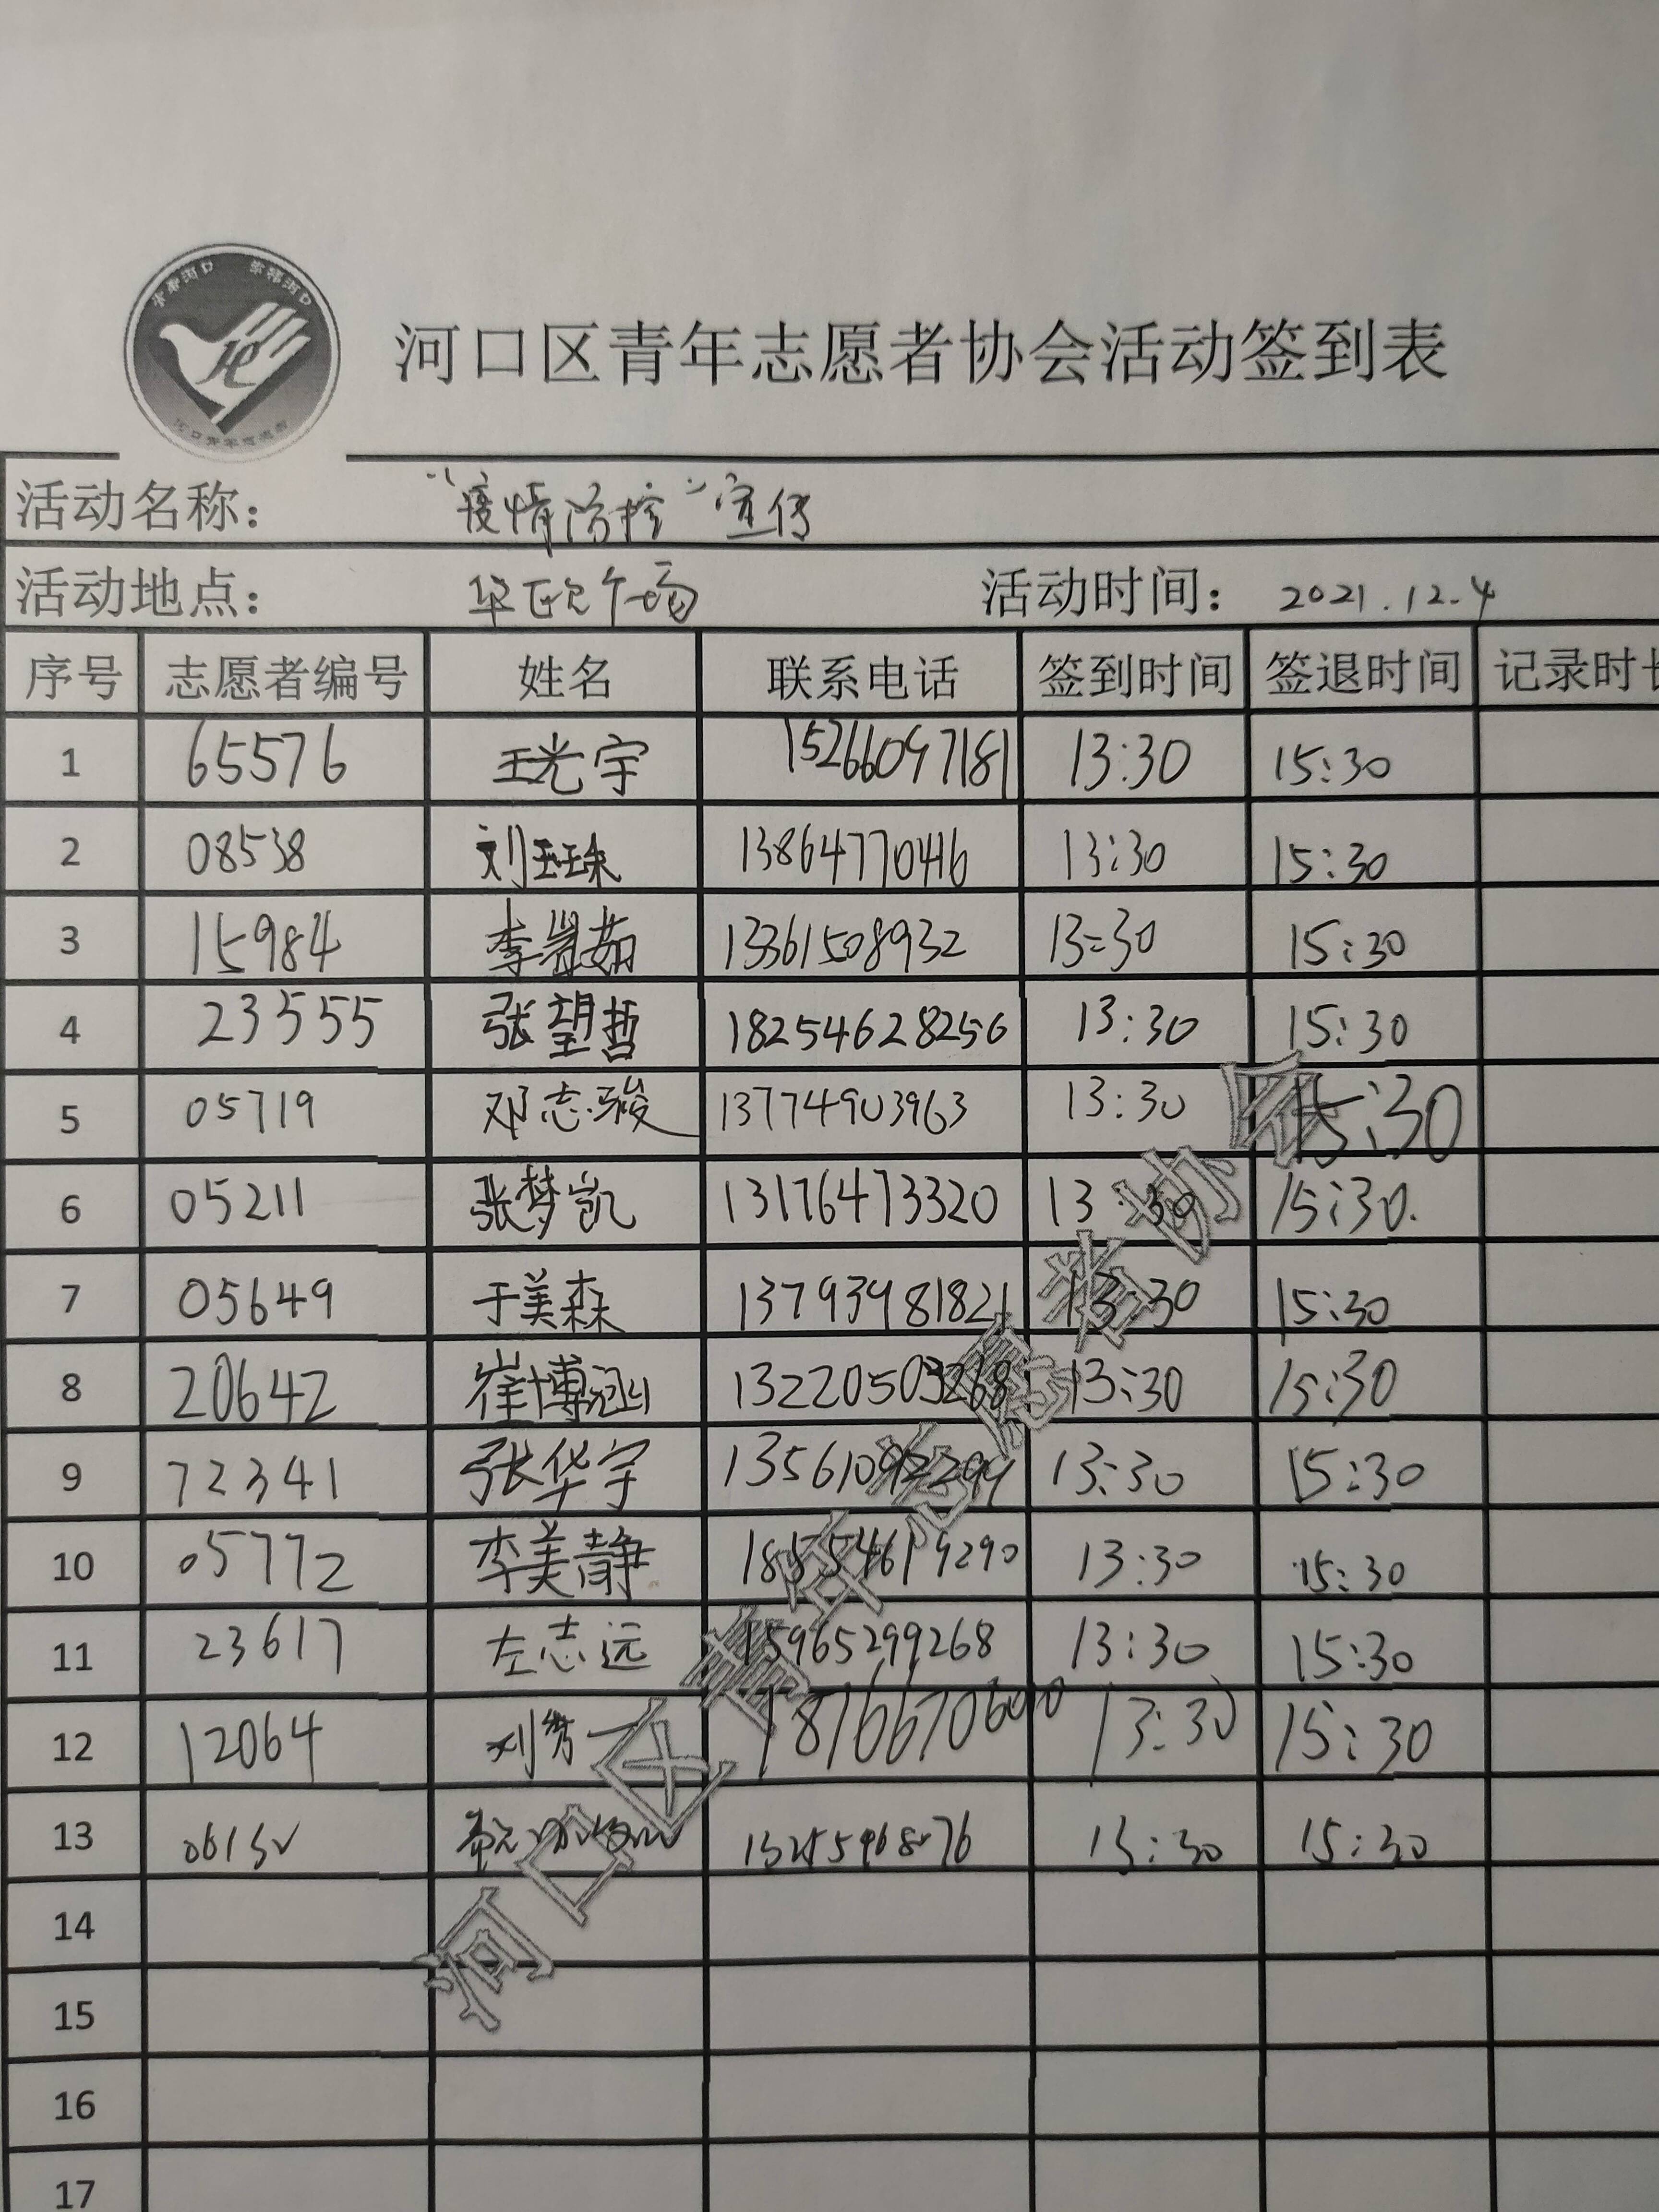 河口区青年志愿者协会活动签到表
活动名称： “疫情防控”宣传
活动地点： 华欧广场 活动时间： 2021.12.4
序号 志愿者编号 姓名 联系电话 签到时间 签退时间 记录时长
1 65576 王光宇 15266097181 13:30 15:30
2 08538 刘珏珠 13864770416 13:30 15:30
3 15984 李 茹 13361508932 13:30 15:30
4 23555 张望哲 18254628256 13:30 15:30
5 05719 邓志骏 13774903963 13:30 15:30
6 05211 张梦凯 13176473320 13:30 15:30.
7 05649 于美森 13793981821 13:30 15:30
8 20642 崔博涵 13220503268 13:30 15:30
9 72341 张华宇 13561092294 13:30 15:30
10 05772 李美静 18554619290 13:30 15:30
11 23617 左志远 15965299268 13:30 15:30
12 12064 刘秀一 13:30 15:30
13 13:30 15:30
14
15
16
17
河口区青年志愿者协会